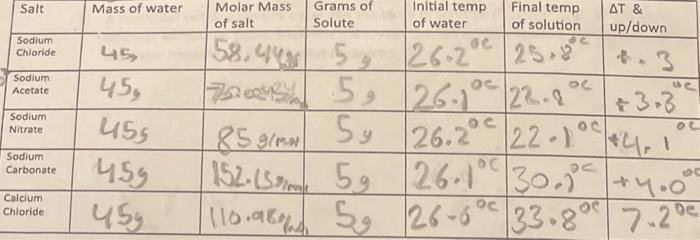 Salt Mass of water Molar Mass of salt Grams of Solute Initial temp of water Final temp of solution ΔT & up/down
Sodium Chloride 45g 58.44g 5g 26.2°C 25.8°C +.3
Sodium Acetate 45g 5g 26.1°C 22.8°C +3.3°C
Sodium Nitrate 45g 85g/mol 5g 26.2°C 22.1°C +4.1°C
Sodium Carbonate 45g 152.15g/mol 5g 26.1°C 30.1°C +4.0°C
Calcium Chloride 45g 110.98g/mol 5g 26.6°C 33.8°C 7.2°C